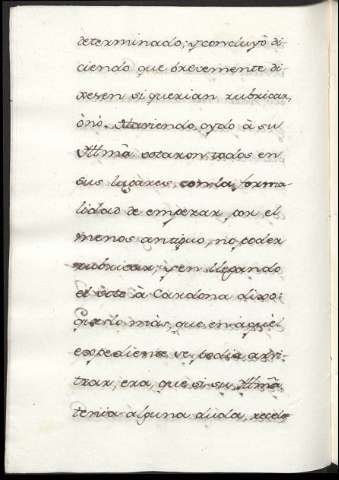 determinado; y concluyò di-
ciendo que brevemente di-
xesen si querian rubricar,
ònò. Haviendo oydo à su
Illmâ votaron todos en
sus lugàres, con la forma-
lidad de empezar por el
menos antiguo, no poder
rubricar; y en llegando
el voto à Cardona dixo:
Que lo màs, que en aquel
expediente se podia arbi-
trar, era, que si su Illmâ
tenia alguna duda, recelo